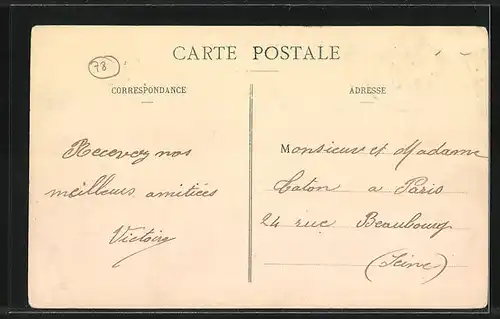 78
CARTE POSTALE
CORRESPONDANCE
Recevez nos
meilleurs amitiées
Victoire
ADRESSE
Monsieur et Madame
Caton à Paris
24 rue Beaubourg
(Seine)